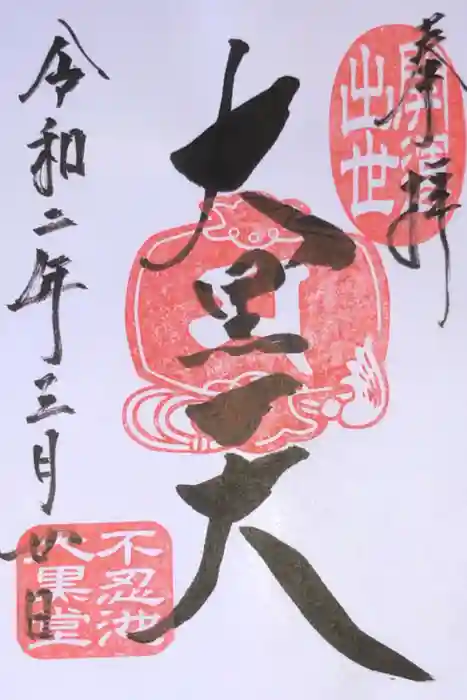 奉拝
開運
出世
大黒天
令和二年三月四日
不忍池
大黒堂